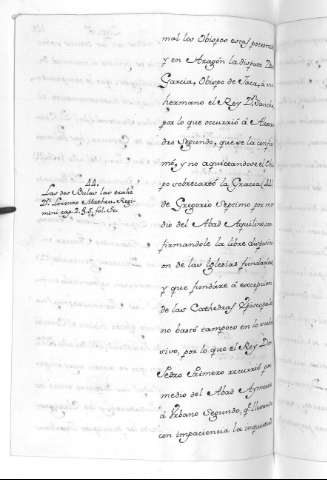 mal los Obispos estas potestad
y en Aragón la disputa Dn
Garcia, Obispo de Jaca, a su
hermano el Rey Dn Sancho
por lo que ocurrió a Alexan
dro Segundo, que se la confir
mó, y no aquietandose el Obis
po sobrecartó la Gracia 44
de Gregorio Septimo por me
dio del Abad Aquilino con
firmandole la libre disposici
on de las Iglesias fundadas
y que fundáre á excepcion
de las Cathedrales Episcopales
no bastó tampoco
vivo, por lo que el Rey Don
Pedro Primero recurrió por
medio del Abad Aymerico
á Urbano Segundo, q.e
con impaciencia la inquietud
44.
Las dos Bulas las trahe
Dn Lorenzo Matheu Regi
mini cap. 2. § 5.